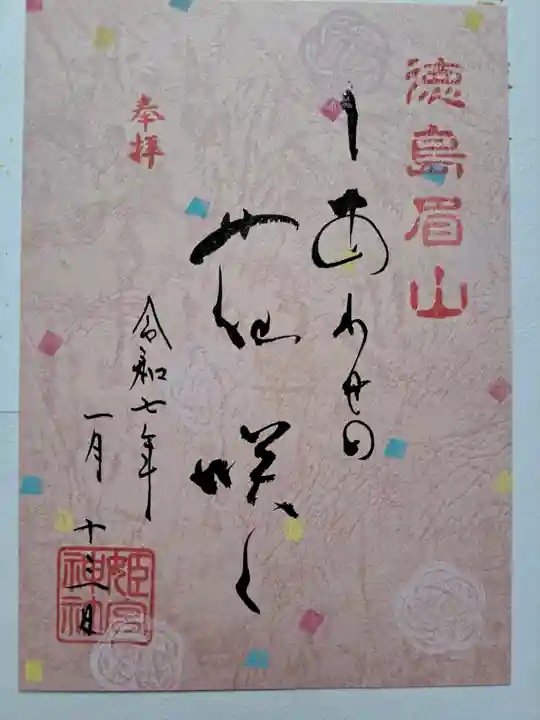 徳島眉山
しあわせの
花咲く
奉拝
令和七年
一月十三日
姫宮
神社